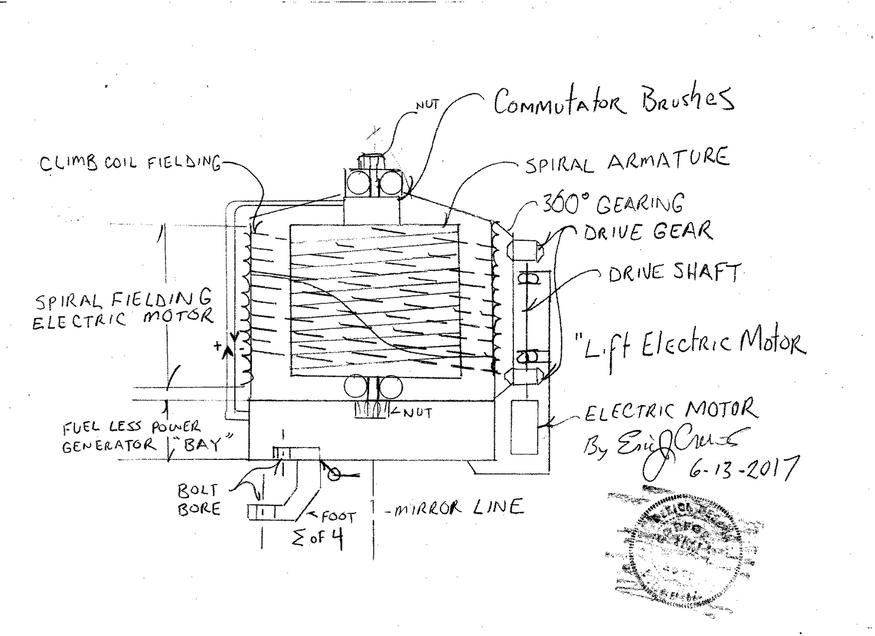 NUT
Commutator Brushes
CLIMB COIL FIELDING
SPIRAL ARMATURE
360° GEARING
DRIVE GEAR
DRIVE SHAFT
SPIRAL FIELDING
ELECTRIC MOTOR
+
"Lift Electric Motor
NUT
ELECTRIC MOTOR
FUEL LESS POWER
GENERATOR "BAY"
By Eric J
6-13-2017
BOLT
BORE
FOOT
Σ OF 4
MIRROR LINE